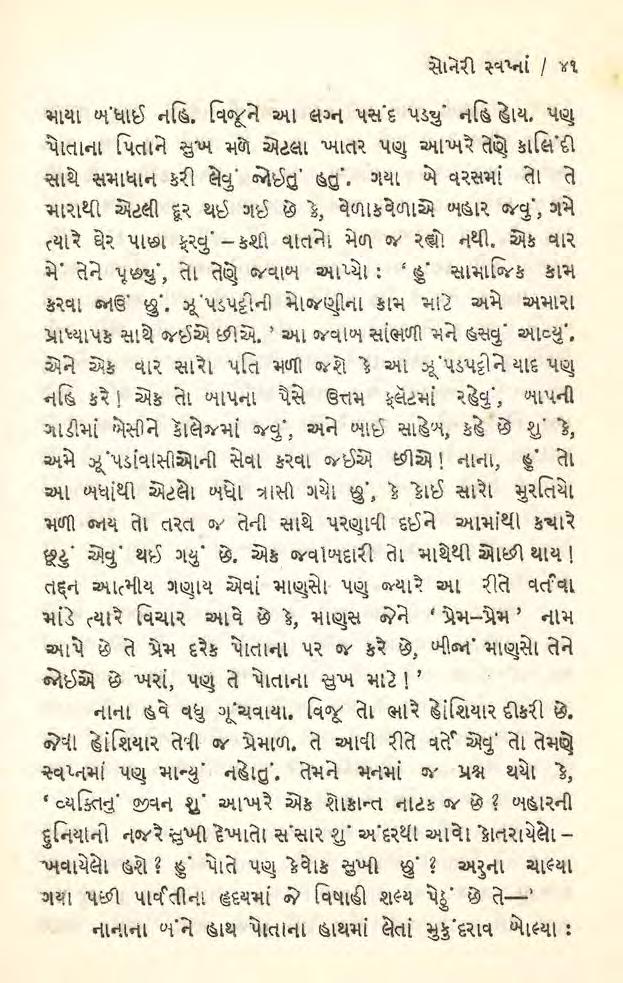 સોનેરી સ્વપ્નાં / ૪૧
માયા બંધાઈ નહિ. વિજૂને આ લગ્ન પસંદ પડ્યું નહિ હોય. પણ
પોતાના પિતાને સુખ મળે એટલા ખાતર પણ આખરે તેણે કાલિંદી
સાથે સમાધાન કરી લેવું જોઈતું હતું. ગયા બે વરસમાં તો તે
મારાથી એટલી દૂર થઈ ગઈ છે કે, વેળાકવેળાએ બહાર જવું, ગમે
ત્યારે ઘેર પાછા ફરવું – કશી વાતનો મેળ જ રહ્યો નથી. એક વાર
મેં તેને પૂછ્યું, તો તેણે જવાબ આપ્યો : ‘ હું સામાજિક કામ
કરવા જાઉં છું. ઝૂંપડપટ્ટીની મોજણીના કામ માટે અમે અમારા
પ્રાધ્યાપક સાથે જઈએ છીએ. ’ આ જવાબ સાંભળી મને હસવું આવ્યું.
એને એક વાર સારો પતિ મળી જશે કે આ ઝૂંપડપટ્ટીને યાદ પણ
નહિ કરે ! એક તો બાપના પૈસે ઉત્તમ ફ્લૅટમાં રહેવું, બાપની
ગાડીમાં બેસીને કૉલેજમાં જવું, અને બાઈ સાહેબ, કહે છે શું કે,
અમે ઝૂંપડાંવાસીઓની સેવા કરવા જઈએ છીએ ! નાના, હું તો
આ બધાંથી એટલો બધો ત્રાસી ગયો છું, કે કોઈ સારો મુરતિયો
મળી જાય તો તરત જ તેની સાથે પરણાવી દઈને આમાંથી કયારે
છૂટું એવું થઈ ગયું છે. એક જવાબદારી તો માથેથી ઓછી થાય !
તદ્દન આત્મીય ગણાય એવાં માણસો પણ જ્યારે આ રીતે વર્તવા
માંડે ત્યારે વિચાર આવે છે કે, માણસ જેને ‘ પ્રેમ–પ્રેમ ’ નામ
આપે છે તે પ્રેમ દરેક પોતાના પર જ કરે છે, બીજાં માણસો તેને
જોઈએ છે ખરાં, પણ તે પોતાના સુખ માટે ! ’
નાના હવે વધુ ગૂંચવાયા. વિજૂ તો ભારે હોંશિયાર દીકરી છે.
જેવી હોંશિયાર તેવી જ પ્રેમાળ. તે આવી રીતે વર્તે એવું તો તેમણે
સ્વપ્નમાં પણ માન્યું નહોતું. તેમને મનમાં જ પ્રશ્ન થયો કે,
‘ વ્યક્તિનું જીવન શું આખરે એક શોકાન્ત નાટક જ છે ? બહારની
દુનિયાની નજરે સુખી દેખાતો સંસાર શું અંદરથી આવો કોતરાયેલો –
ખવાયેલો હશે ? હું પોતે પણ કેવોક સુખી છું ? અરુના ચાલ્યા
ગયા પછી પાર્વતીના હૃદયમાં જે વિષાદી શલ્ય પેઠું છે તે—’
નાનાના બંને હાથ પોતાના હાથમાં લેતાં મુકુંદરાવ બોલ્યા :